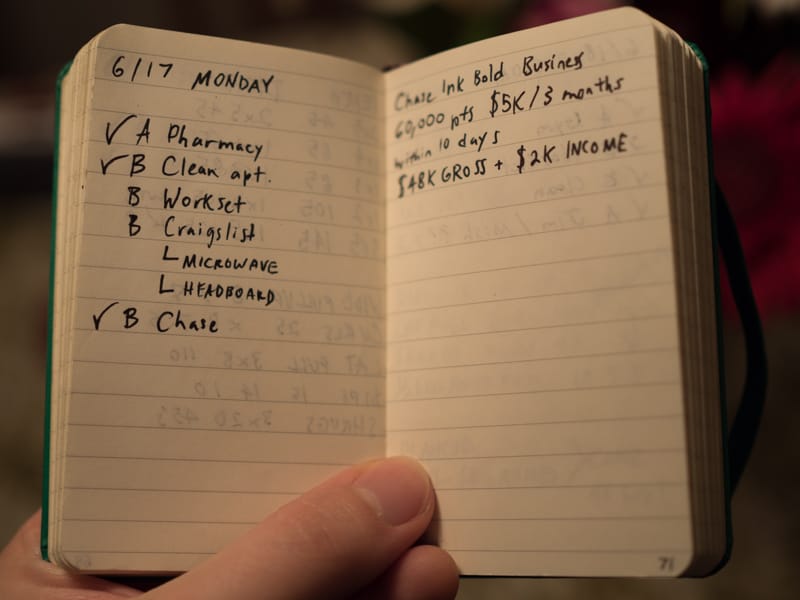 6/17 MONDAY
✓ A Pharmacy
✓ B Clean apt.
B Workset
B Craigslist
L MICROWAVE
L HEADBOARD
✓ B Chase
Chase Ink Bold Business
60,000 pts $5K/3 months
within 10 days
$48K GROSS + $2K INCOME
71